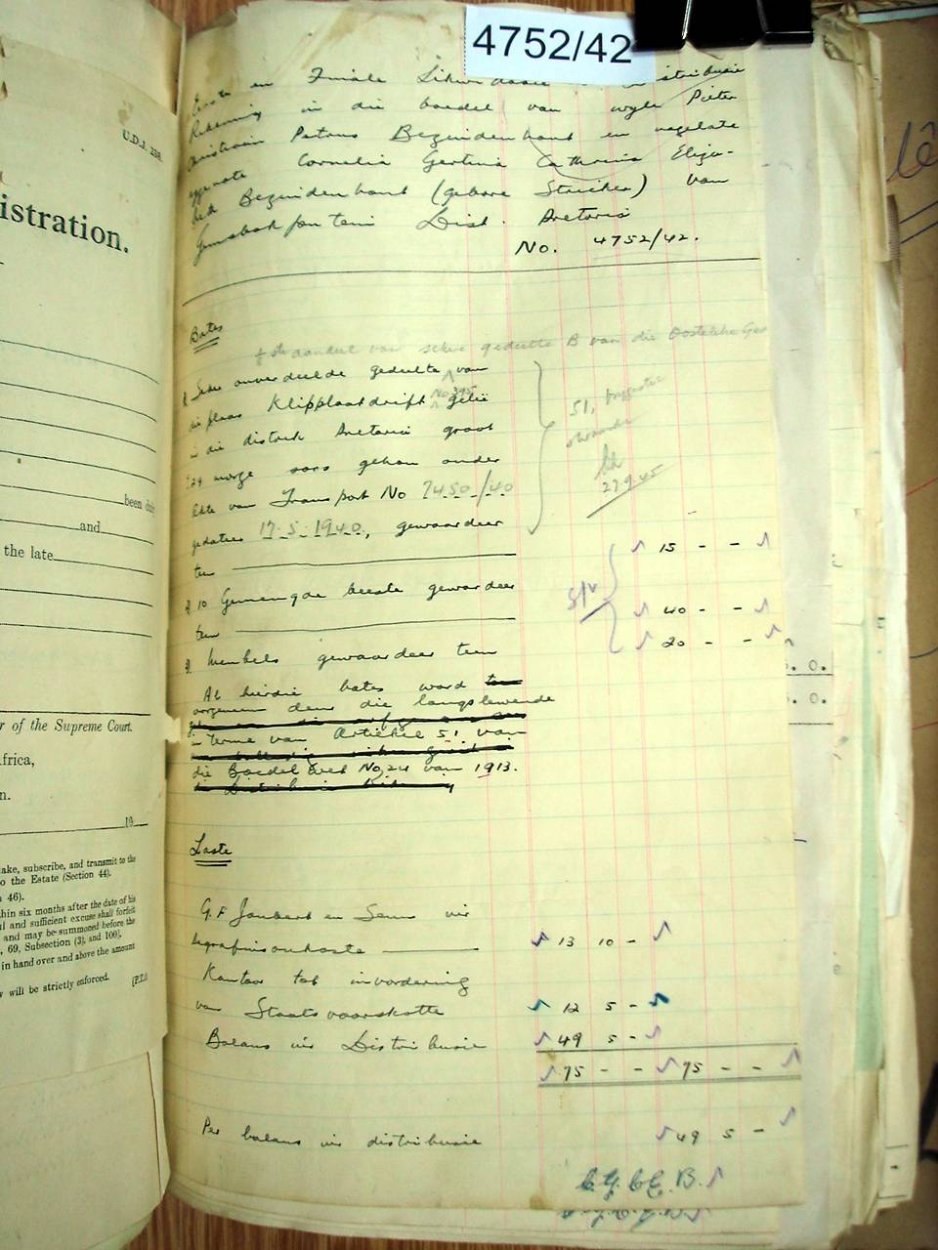 4752/42
U.D.J. 258.
istration.
been
and
the late
r of the Supreme Court.
frica,
n.
19
ake, subscribe, and transmit to the
o the Estate (Section 44).
46).
thin six months after the date of his
ul and sufficient excuse shall forfeit
and may be summoned before the
, 69, Subsection (3), and 100].
in hand over and above the amount
y will be strictly enforced. [P.T.O.
en Finale
Rekening in die boedel van wyle Pieter
Petrus Bezuidenhout en nagelate
Cornelia Gertina Cathrina Eliza-
beth Bezuidenhout (gebore Stricker) van
Gemsbokfontein Dist. Pretoria
No. 4752/42.
Bates
aandeel van sekere gedeelte B van die Oostelike Ged
Sekere onverdeelde gedeelte van
die plaas Klipplaatdrift No 395 geleë
in die distrik Pretoria groot
morge soos gehou onder
Akte van Transport No 7450/40
gedateer 17.5.1940, gewaardeer
ten 15 - -
2. 10 Gemengde beeste gewaardeer
ten 40 - -
3. Meubels gewaardeer teen 20 - -
51,
27 9 45
Al hierdie bates word
oorgeneem deur die langslewende
in terme van Artiekel 51 van
die Boedel Wet No 24 van 1913.
Laste
G.F. Joubert en Seuns vir
begrafnisonkoste 13 10 -
Kantoor tot invordering
van Staatsvoorskotte 12 5 -
Balans vir Distribusie 49 5 -
75 - - 75 - -
Per balans vir distribusie 49 5 -
C.G.C.E.B.
. 0.
. 0.